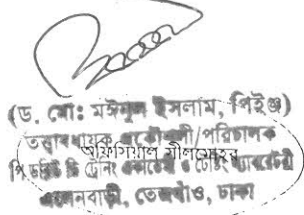 (ড. মো: মঈনুল ইসলাম, পিইঞ্জ)
তত্ত্বাবধায়ক প্রকৌশলী/পরিচালক
অফিসিয়াল সীলমোহর
পি ডব্লিউ ডি ট্রেনিং একাডেমী ও টেস্টিং ল্যাবরেটরী
এলেনবাড়ী, তেজগাঁও, ঢাকা